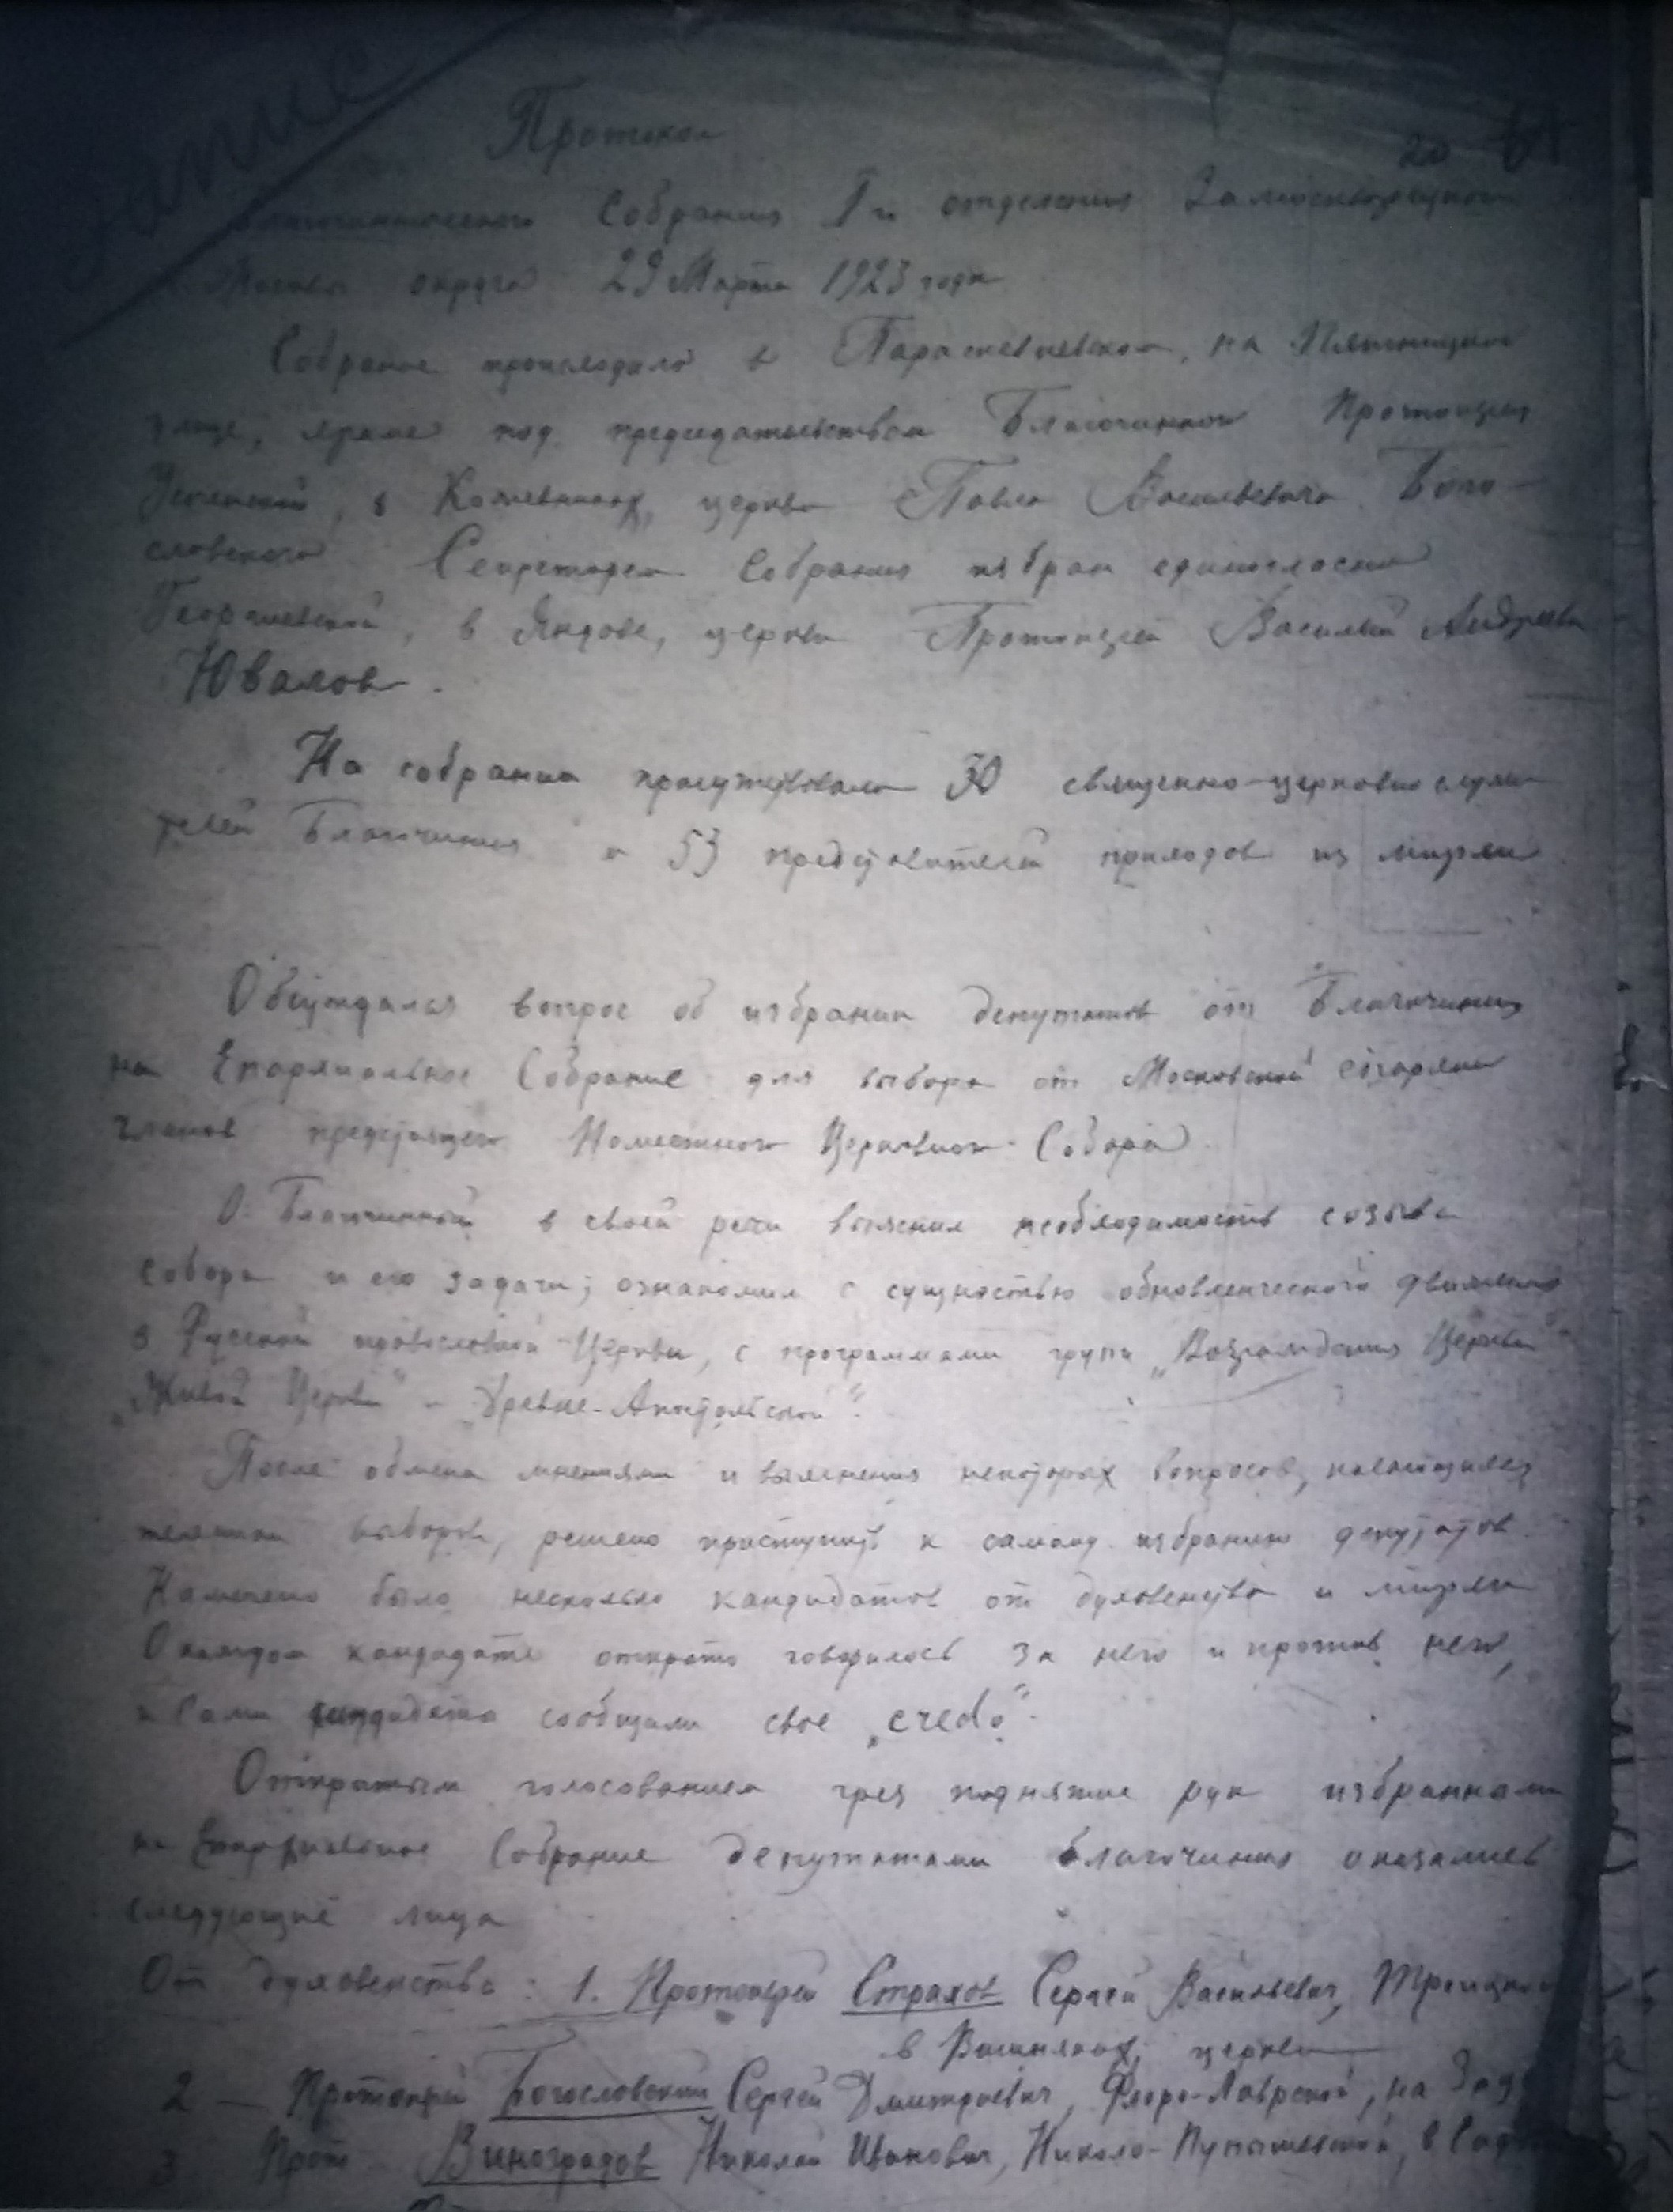 Протокол
20 61
Благочиннического Собрания I го отделения Замоскворецкого
Москвы округа 29 Марта 1923 года
Собрание происходило в Параскевиевском, на Пятницкой
улице, храме под председательством Благочинного Протоиерея
Успенской, в Кожевниках, церкви Павла Васильевича Бого-
словского Секретарем Собрания избран единогласно
Георгиевской, в Яндове, церкви Протоиерей Василий Андреевич
Ювалов.
На собрании присутствовало 30 священно-церковно служи
телей Благочиния и 53 представителей приходов из мирян
Обсуждался вопрос об избрании депутатов от Благочиния
на Епархиальное Собрание для выбора от Московской епархии
членов предстоящего Поместного Церковного Собора
О. Благочинный в своей речи выяснил необходимость созыва
Собора и его задачи; ознакомил с сущностью обновленческого движения
в Русской православной Церкви, с программами групп „Возрождения Церкви"
„Живой Церкви" и „Древле-Апостольской".
После обмена мнениями и выяснения некоторых вопросов,
выборов, решено приступить к самому избранию депутатов.
Намечено было несколько кандидатов от духовенства и мирян
О каждом кандидате открыто говорилось за него и против него,
и Сами кандидаты сообщали свое „credo".
Открытым голосованием чрез поднятие рук избранными
на Епархиальное Собрание депутатами благочиния оказались
следующие лица
От духовенства: 1. Протоиерей Страхов Сергей Васильевич, Троицкой
в Вишняках, церкви
2 — Протоиерей Богословский Сергей Дмитриевич, Флоро-Лаврской, на Зац
3 Прот Виноградов Николай Иванович, Николо-Пупышевской, в Садов